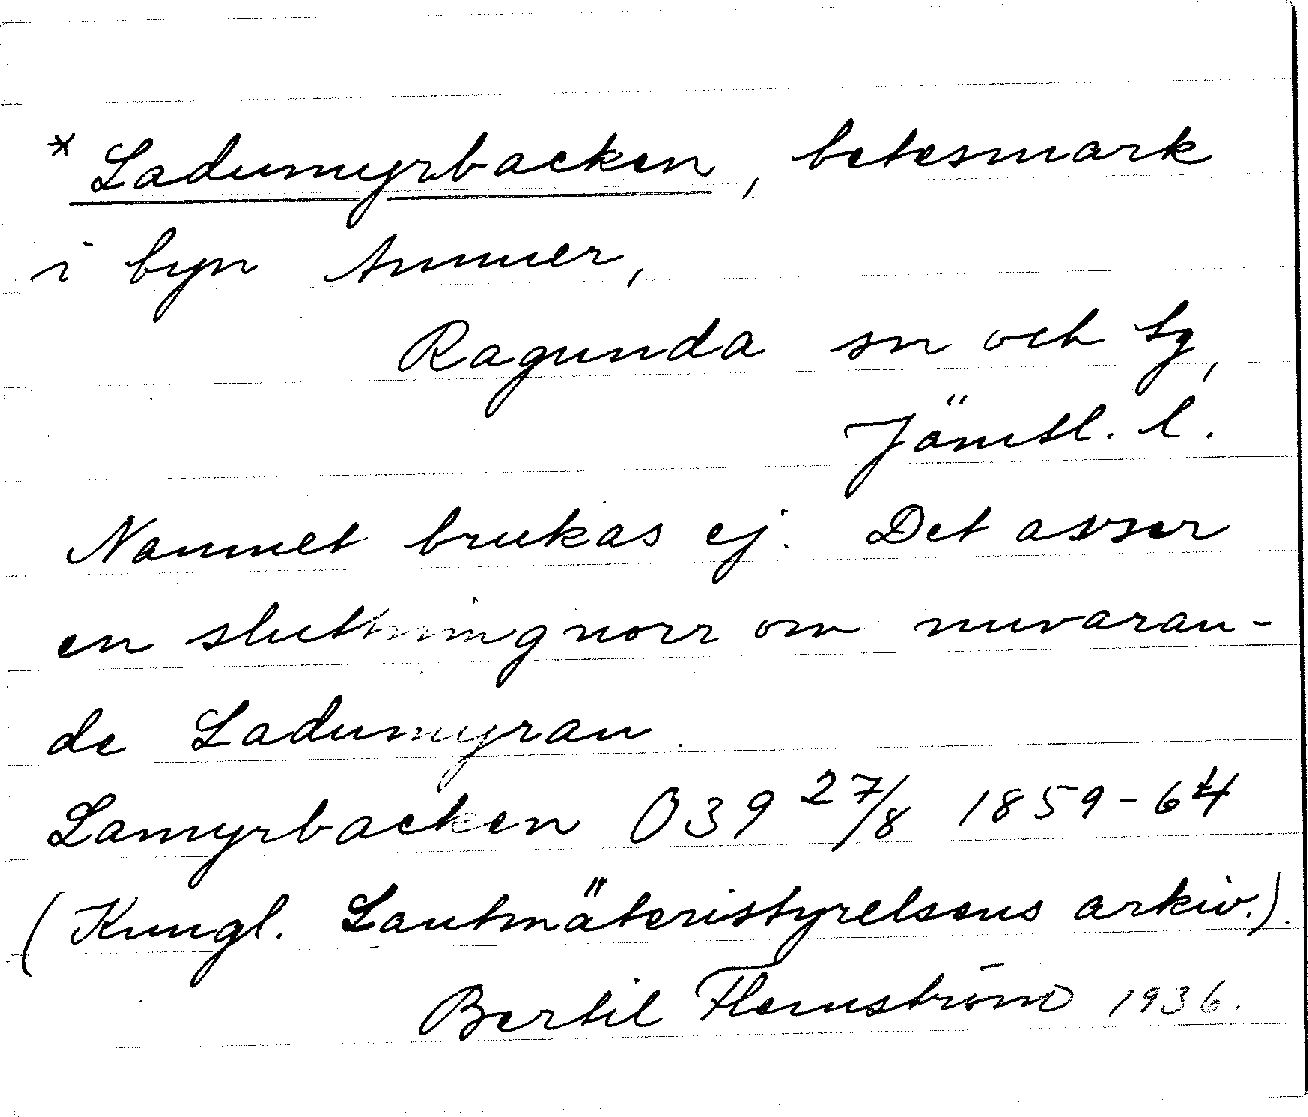 * Ladumyrbacken, betesmark
i byn Ammer,
Ragunda sn och tg,
Jämtl. l.
Namnet brukas ej. Det avser
en sluttning norr om nuvaran-
de Ladumyran.
Lamyrbacken O39 27/8 1859-64
(Kungl. Lantmäteristyrelsens arkiv.).
Bertil Flemström 1936.